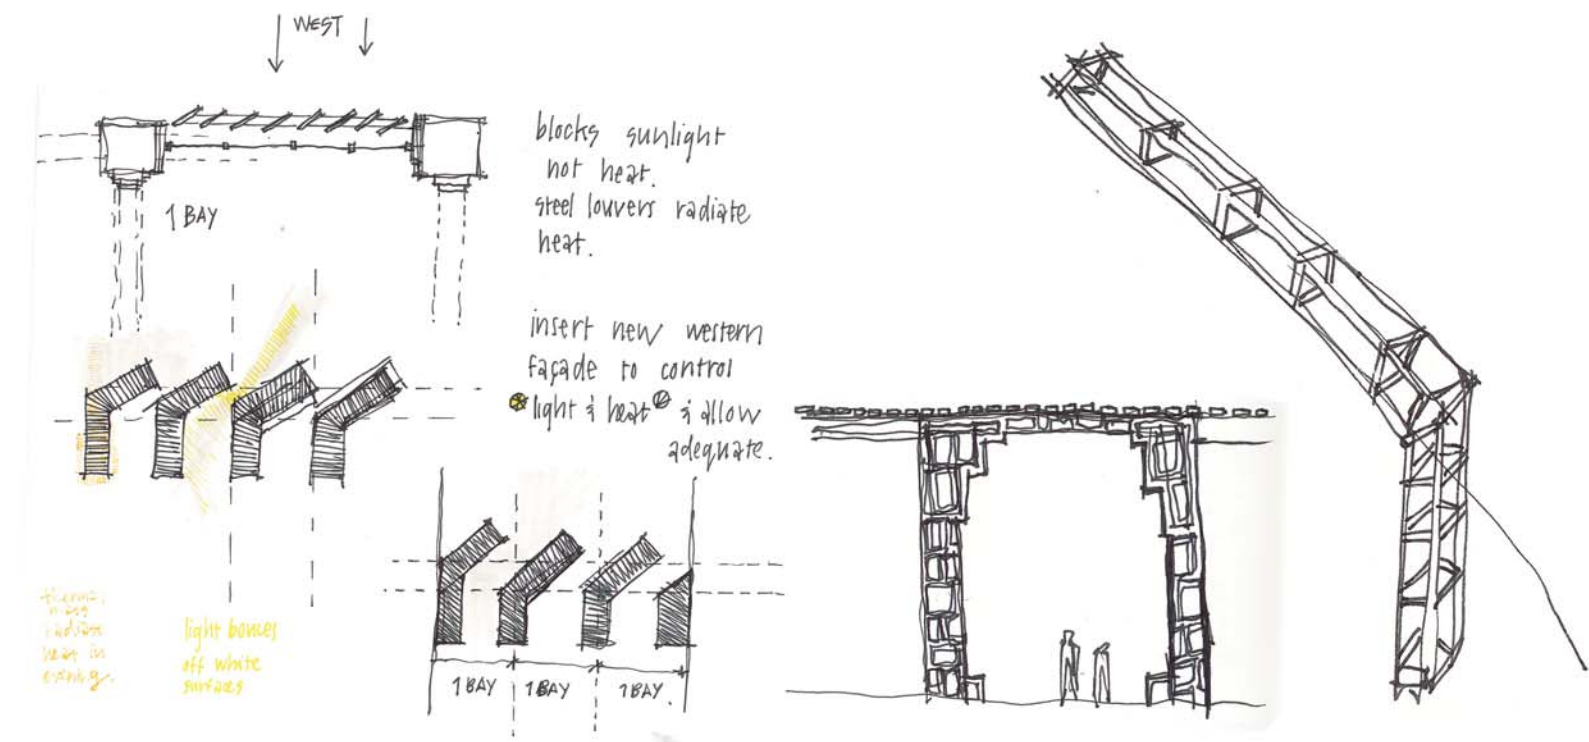 WEST
blocks sunlight
not heat.
steel louvers radiate
heat.
1 BAY
insert new western
façade to control
light & heat & allow
adequate.
thermal
mass
radiates
heat in
evening.
light bounces
off white
surfaces
1 BAY
1 BAY
1 BAY